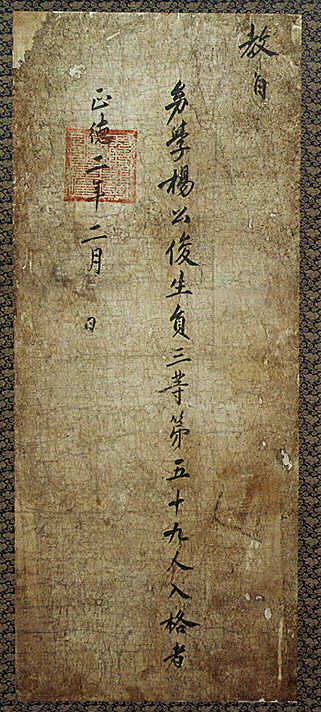 教旨
幼學楊公俊生員三等第五十九人入格者
正德二年二月　日